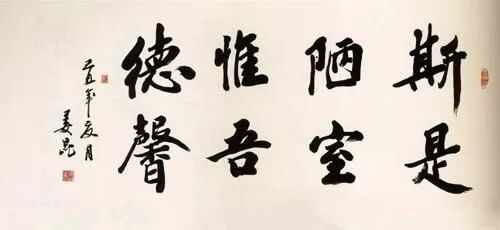 斯是
陋室
惟吾
德馨
己丑年夏月
姜昆